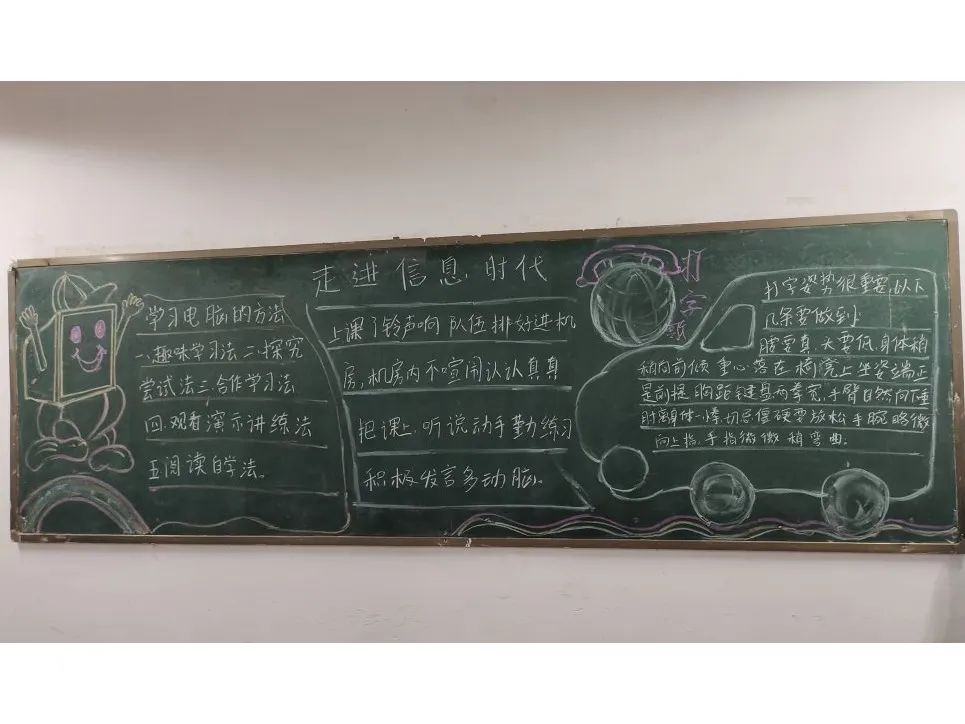 走进信息时代
学习电脑的方法
一、趣味学习法二、探究
尝试法三、合作学习法
四、观看演示讲练法
五、阅读自学法。
上课了铃声响 队伍排好进机
房,机房内不喧闹认认真真
把课上.听说动手勤练习
积极发言多动脑。
打字
打字姿势很重要,以下
几条要做到:
腰要直 头要低,身体稍
稍向前倾 重心落在椅凳上坐姿端正
是前提 胸距键盘两拳宽,手臂自然向下垂
肘离身体一 切忌僵硬要放松手腕略微
向上抬.手指微微稍弯曲.